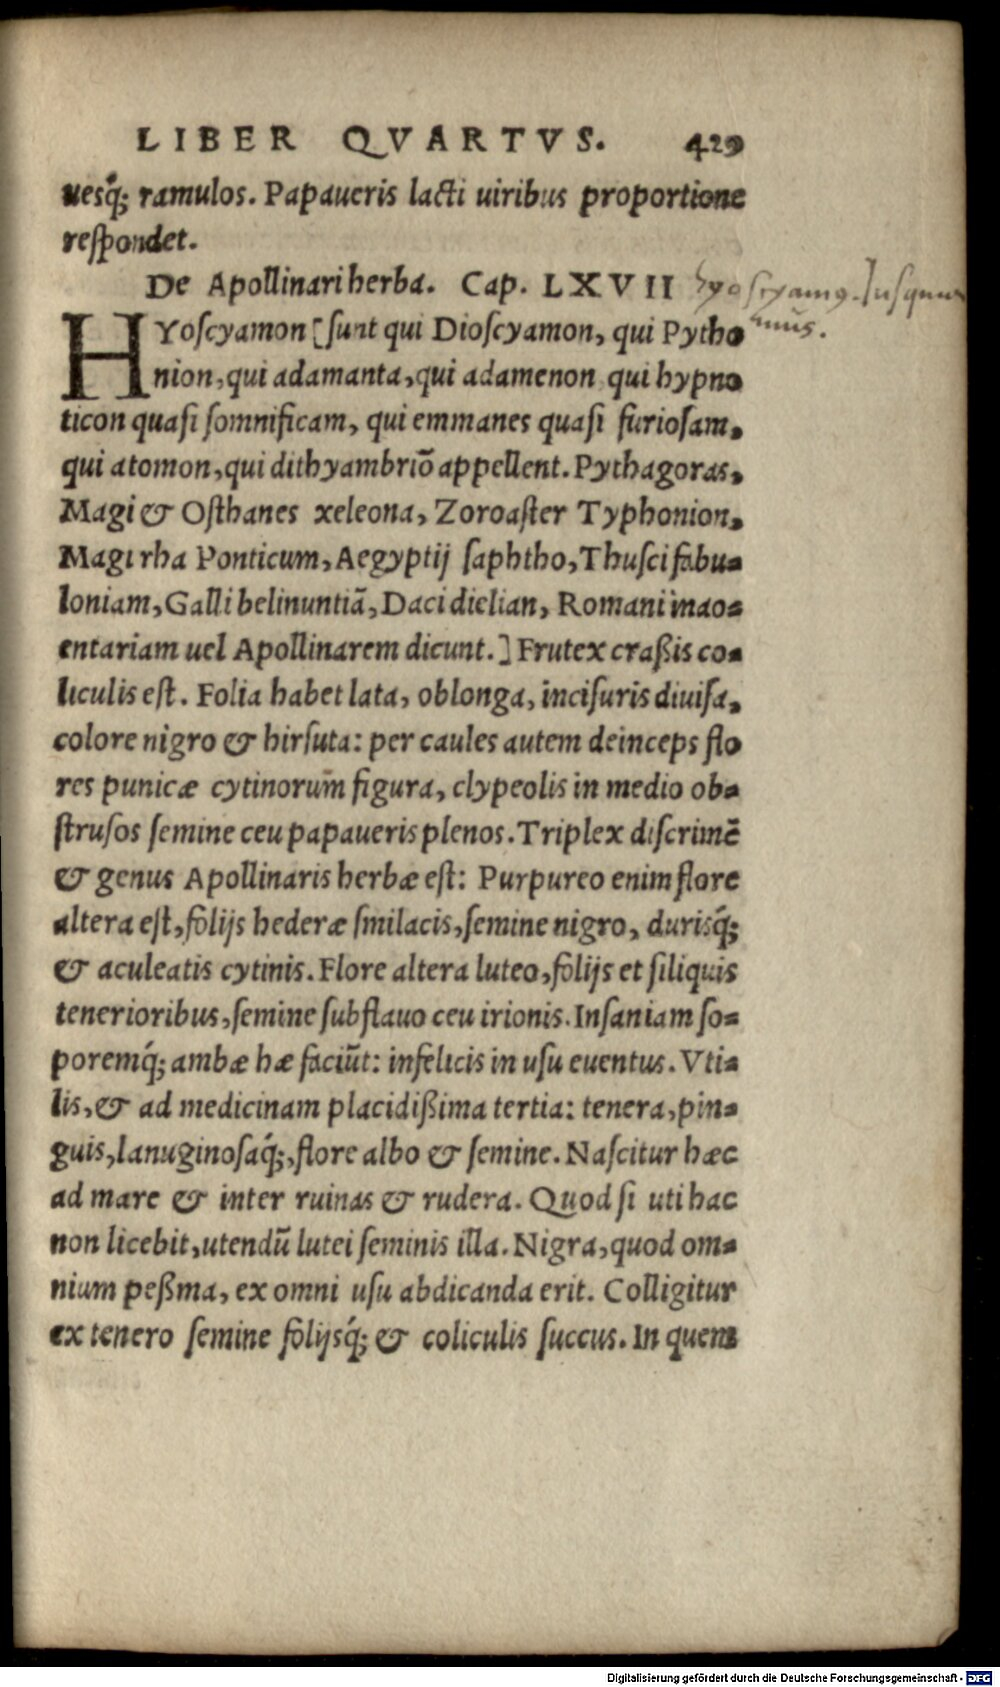 LIBER QVARTVS. 429
uesq́; ramulos. Papaueris lacti uiribus proportione
respondet.
De Apollinari herba. Cap. LXVII
Hyoscyamus. Jusquia-
mus.
HYoscyamon [sunt qui Dioscyamon, qui Pytho
nion, qui adamanta, qui adamenon qui hypno
ticon quasi somnificam, qui emmanes quasi furiosam,
qui atomon, qui dithyambriõ appellent. Pythagoras,
Magi & Osthanes xeleona, Zoroaster Typhonion,
Magi rha Ponticum, Aegyptij saphtho, Thusci fabu-
loniam, Galli belinuntiã, Daci dielian, Romani inao-
entariam uel Apollinarem dicunt.] Frutex craßis co-
liculis est. Folia habet lata, oblonga, incisuris diuisa,
colore nigro & hirsuta: per caules autem deinceps flo
res punicæ cytinorum figura, clypeolis in medio ob-
strusos semine ceu papaueris plenos. Triplex discrimẽ
& genus Apollinaris herbæ est: Purpureo enim flore
altera est, folijs hederæ smilacis, semine nigro, durisq́;
& aculeatis cytinis. Flore altera luteo, folijs et siliquis
tenerioribus, semine subflauo ceu irionis. Insaniam so-
poremq́; ambæ hæ faciũt: infelicis in usu euentus. Vti-
lis, & ad medicinam placidißima tertia: tenera, pin-
guis, lanuginosaq́;, flore albo & semine. Nascitur hæc
ad mare & inter ruinas & rudera. Quod si uti hac
non licebit, utendũ lutei seminis illa. Nigra, quod om-
nium peßima, ex omni usu abdicanda erit. Colligitur
ex tenero semine folijsq́; & coliculis succus. In quem
Digitalisierung gefördert durch die Deutsche Forschungsgemeinschaft - DFG